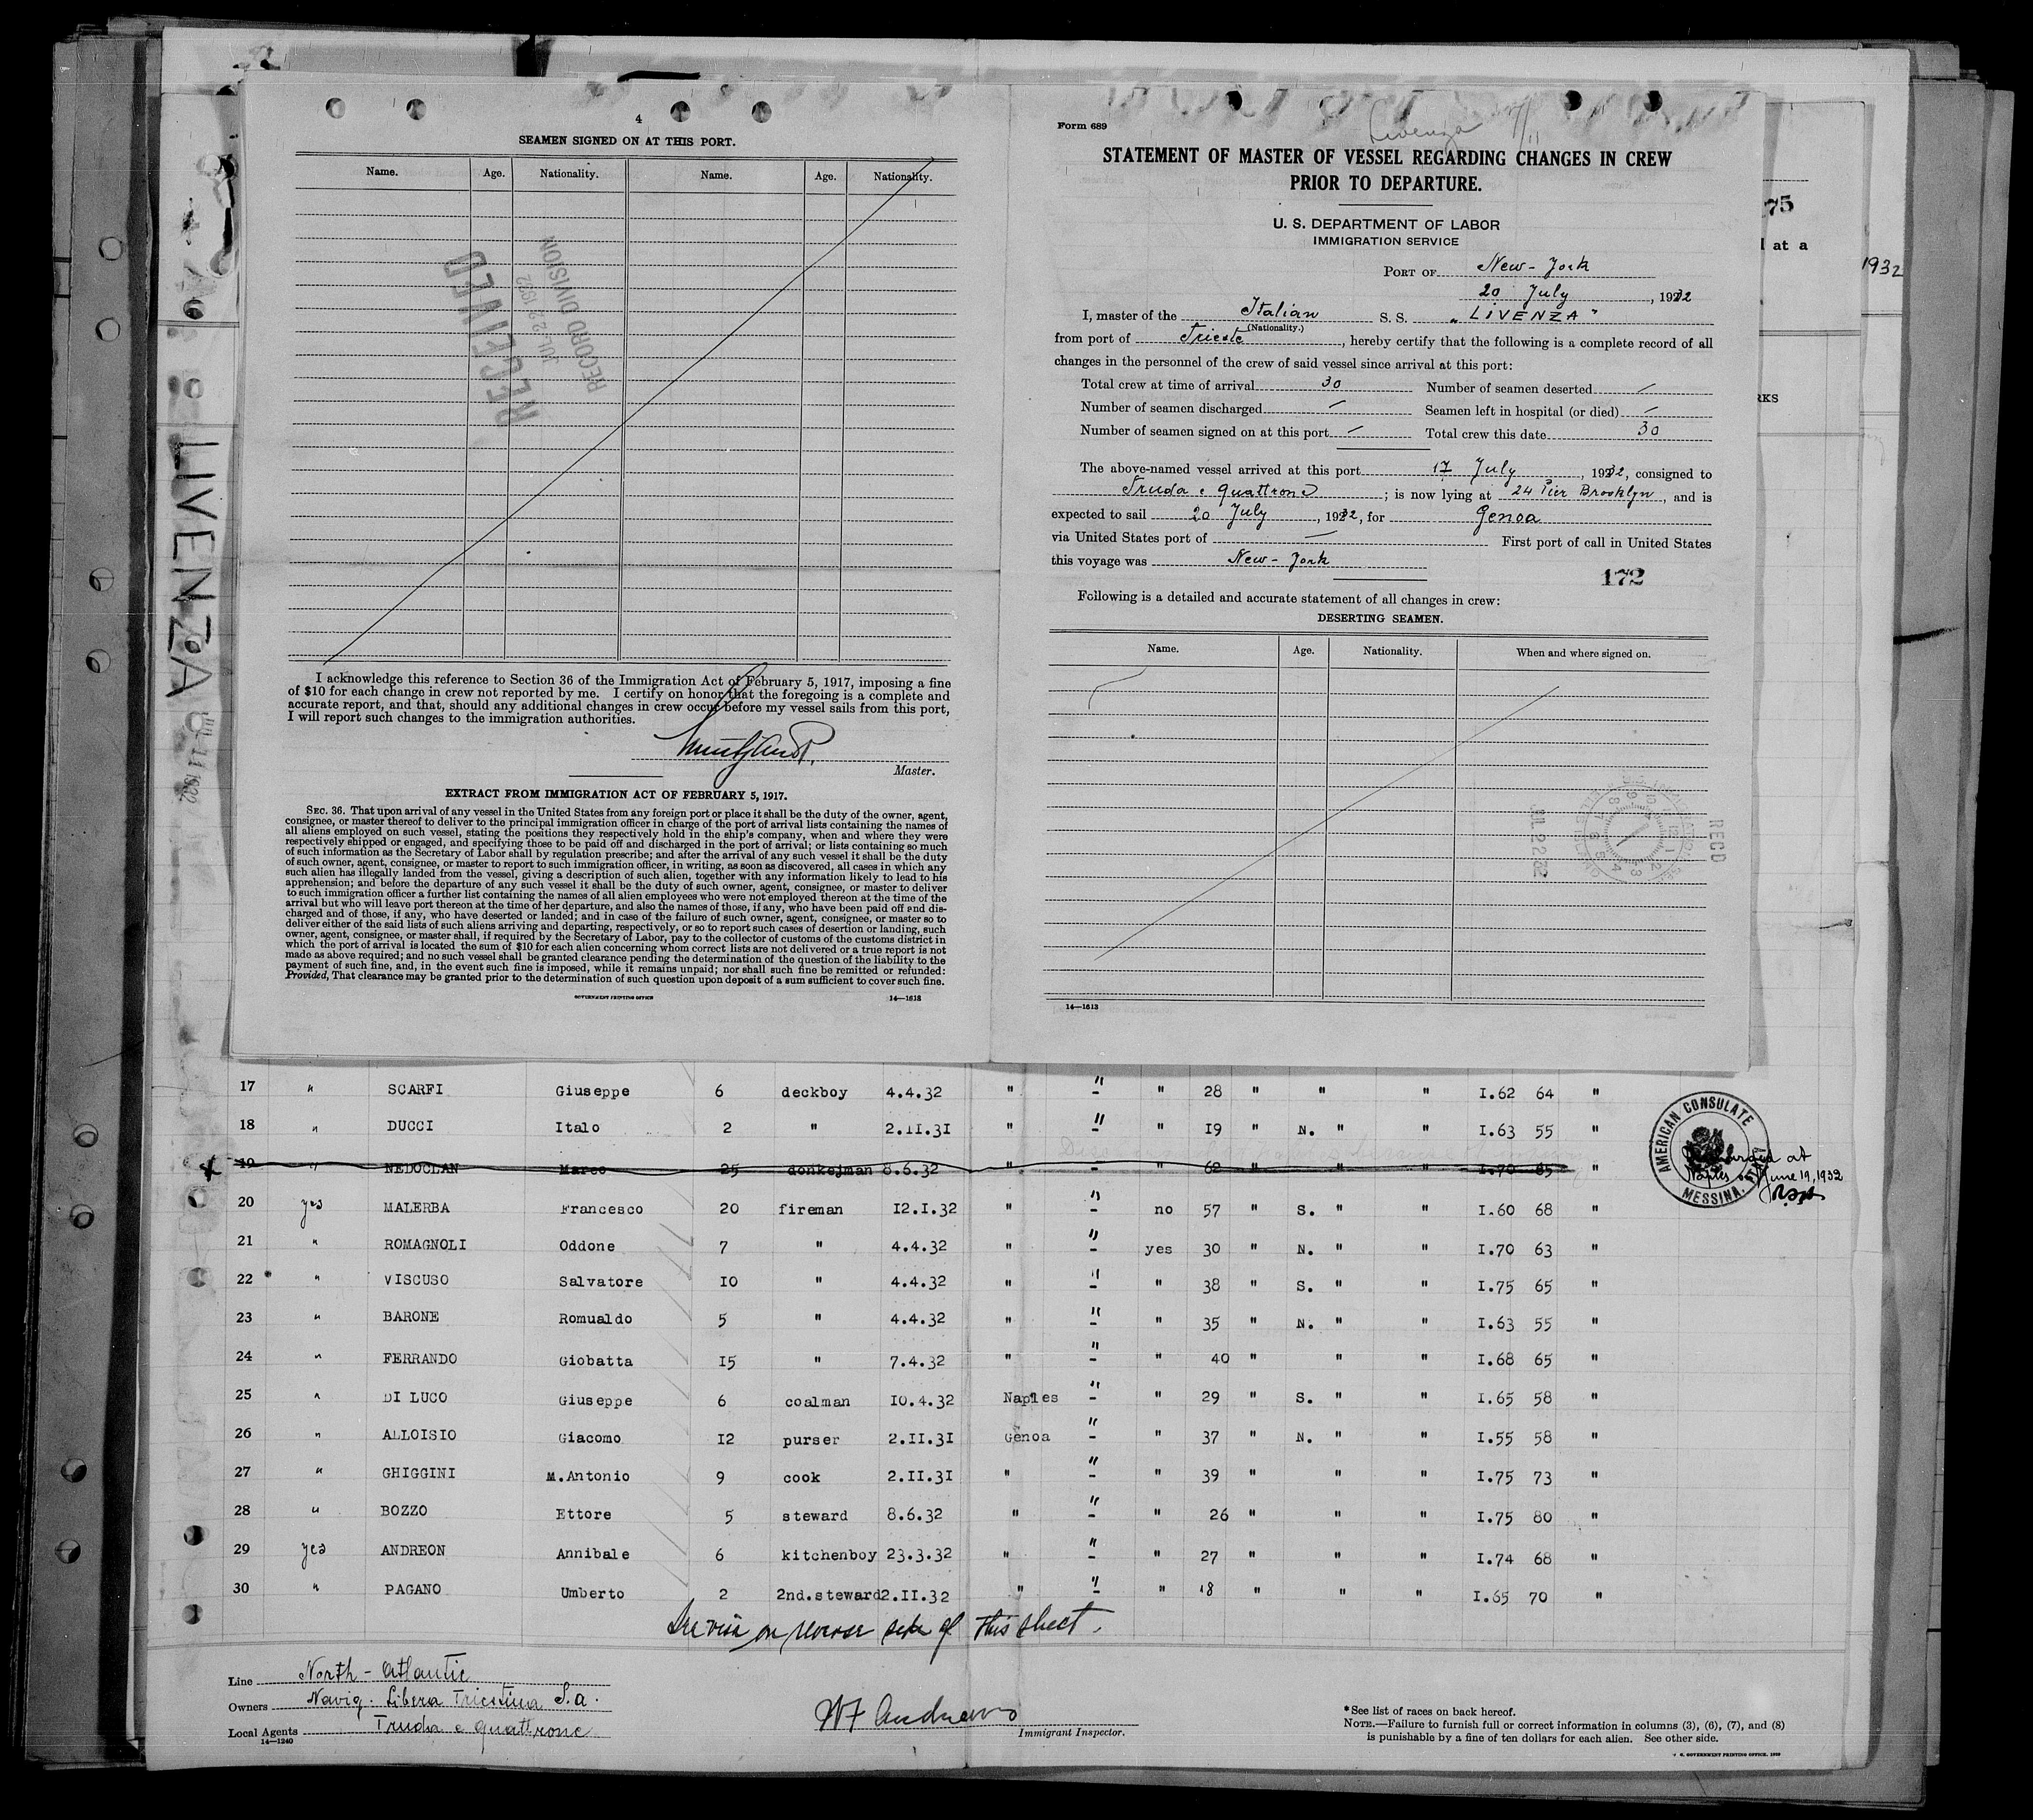 4
SEAMEN SIGNED ON AT THIS PORT.
Name. Age. Nationality. Name. Age. Nationality.
RECEIVED
JUL 22 1932
RECORD DIVISION
I acknowledge this reference to Section 36 of the Immigration Act of February 5, 1917, imposing a fine
of $10 for each change in crew not reported by me. I certify on honor that the foregoing is a complete and
accurate report, and that, should any additional changes in crew occur before my vessel sails from this port,
I will report such changes to the immigration authorities.
Master.
EXTRACT FROM IMMIGRATION ACT OF FEBRUARY 5, 1917.
SEC. 36. That upon arrival of any vessel in the United States from any foreign port or place it shall be the duty of the owner, agent,
consignee, or master thereof to deliver to the principal immigration officer in charge of the port of arrival lists containing the names of
all aliens employed on such vessel, stating the positions they respectively hold in the ship's company, when and where they were
respectively shipped or engaged, and specifying those to be paid off and discharged in the port of arrival; or lists containing so much
of such information as the Secretary of Labor shall by regulation prescribe; and after the arrival of any such vessel it shall be the duty
of such owner, agent, consignee, or master to report to such immigration officer, in writing, as soon as discovered, all cases in which any
such alien has illegally landed from the vessel, giving a description of such alien, together with any information likely to lead to his
apprehension; and before the departure of any such vessel it shall be the duty of such owner, agent, consignee, or master to deliver
to such immigration officer a further list containing the names of all alien employees who were not employed thereon at the time of the
arrival but who will leave port thereon at the time of her departure, and also the names of those, if any, who have been paid off and dis-
charged and of those, if any, who have deserted or landed; and in case of the failure of such owner, agent, consignee, or master so to
deliver either of the said lists of such aliens arriving and departing, respectively, or so to report such cases of desertion or landing, such
owner, agent, consignee, or master shall, if required by the Secretary of Labor, pay to the collector of customs of the customs district in
which the port of arrival is located the sum of $10 for each alien concerning whom correct lists are not delivered or a true report is not
made as above required; and no such vessel shall be granted clearance pending the determination of the question of the liability to the
payment of such fine, and, in the event such fine is imposed, while it remains unpaid; nor shall such fine be remitted or refunded:
Provided, That clearance may be granted prior to the determination of such question upon deposit of a sum sufficient to cover such fine.
GOVERNMENT PRINTING OFFICE 14—1613
Livenza
Form 689
STATEMENT OF MASTER OF VESSEL REGARDING CHANGES IN CREW
PRIOR TO DEPARTURE.
U. S. DEPARTMENT OF LABOR
IMMIGRATION SERVICE
PORT OF New-York
20 July, 1932
I, master of the Italian S. S. „LIVENZA"
(Nationality.)
from port of Trieste, hereby certify that the following is a complete record of all
changes in the personnel of the crew of said vessel since arrival at this port:
Total crew at time of arrival 30 Number of seamen deserted —
Number of seamen discharged — Seamen left in hospital (or died) —
Number of seamen signed on at this port — Total crew this date 30
The above-named vessel arrived at this port 17 July, 1932, consigned to
Truda e Quattrone; is now lying at 24 Pier Brooklyn, and is
expected to sail 20 July, 1932, for Genoa
via United States port of — First port of call in United States
this voyage was New-York
172
Following is a detailed and accurate statement of all changes in crew:
DESERTING SEAMEN.
Name. Age. Nationality. When and where signed on.
RECD
JUL 22 32
14—1613
75
at a
1932
RKS
LIVENZA
JUL 11 1932
17 " SCARFI Giuseppe 6 deckboy 4.4.32 " " - " 28 " " " I.62 64 "
18 " DUCCI Italo 2 " 2.II.3I " " - " I9 " N. " " I.63 55 "
19 " NEDOCLAN Marco 25 donkejman 8.6.32 " - " 62 I.70 85 "
20 yes MALERBA Francesco 20 fireman I2.I.32 " " - no 57 " S. " " I.60 68 "
21 " ROMAGNOLI Oddone 7 " 4.4.32 " " - yes 30 " N. " " I.70 63 "
22 " VISCUSO Salvatore IO " 4.4.32 " " - " 38 " S. " " I.75 65 "
23 " BARONE Romualdo 5 " 4.4.32 " " - " 35 " N. " " I.63 55 "
24 " FERRANDO Giobatta I5 " 7.4.32 " " - " 40 " " " I.68 65 "
25 " DI LUCO Giuseppe 6 coalman IO.4.32 Naples " - " 29 " S. " " I.65 58 "
26 " ALLOISIO Giacomo I2 purser 2.II.3I Genoa " - " 37 " N. " " I.55 58 "
27 " GHIGGINI M.Antonio 9 cook 2.II.3I " " - " 39 " " " I.75 73 "
28 " BOZZO Ettore 5 steward 8.6.32 " " - " 26 " " " I.75 80 "
29 yes ANDREON Annibale 6 kitchenboy 23.3.32 " " - " 27 " " " I.74 68 "
30 " PAGANO Umberto 2 2nd.steward 2.II.32 " " - " 18 " " " I.65 70 "
AMERICAN CONSULATE
MESSINA, ITALY
Discharged at
Naples on June 19, 1932
See visa on reverse side of this sheet.
Line North-Atlantic
Owners Navig. Libera Triestina S.a.
Local Agents Truda e Quattrone
14—1240
Immigrant Inspector.
*See list of races on back hereof.
NOTE.—Failure to furnish full or correct information in columns (3), (6), (7), and (8)
is punishable by a fine of ten dollars for each alien. See other side.